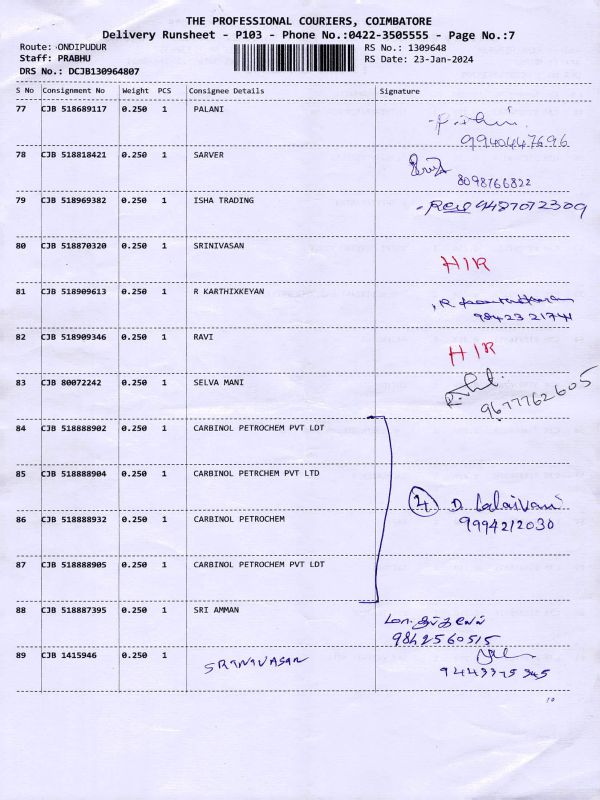 THE PROFESSIONAL COURIERS, COIMBATORE
Delivery Runsheet - P103 - Phone No.:0422-3505555 - Page No.:7
Route: ONDIPUDUR RS No.: 1309648
Staff: PRABHU RS Date: 23-Jan-2024
DRS No.: DCJB130964807
S No Consignment No Weight PCS Consignee Details Signature
77 CJB 518689117 0.250 1 PALANI
9940447696
78 CJB 518818421 0.250 1 SARVER
8098766822
79 CJB 518969382 0.250 1 ISHA TRADING 9487072309
80 CJB 518870320 0.250 1 SRINIVASAN
HIR
81 CJB 518909613 0.250 1 R KARTHIXKEYAN
98423 21741
82 CJB 518909346 0.250 1 RAVI
HIR
83 CJB 80072242 0.250 1 SELVA MANI
9677762605
84 CJB 518888902 0.250 1 CARBINOL PETROCHEM PVT LDT
85 CJB 518888904 0.250 1 CARBINOL PETRCHEM PVT LTD
4 D. Kalaivani
86 CJB 518888932 0.250 1 CARBINOL PETROCHEM
9994212030
87 CJB 518888905 0.250 1 CARBINOL PETROCHEM PVT LDT
88 CJB 518887395 0.250 1 SRI AMMAN
9842560515
89 CJB 1415946 0.250 1 SRINIVASAN
9443375345
10